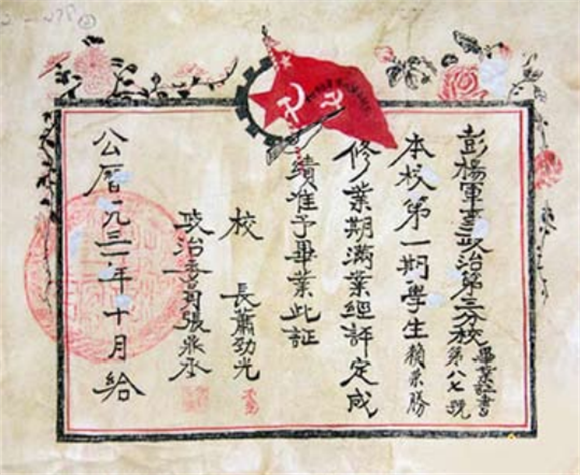 彭楊軍事政治第三分校
畢業証書
第八七號
本校第一期學生賴榮勝
修業期滿業經評定成
績准予畢業此証
校長蕭劲光
政治委員張鼎丞
公曆一九三一年十月給